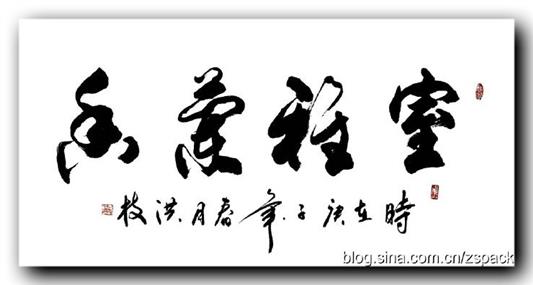 室雅蘭香
時在庚子年春月洪枝
blog.sina.com.cn/zspack